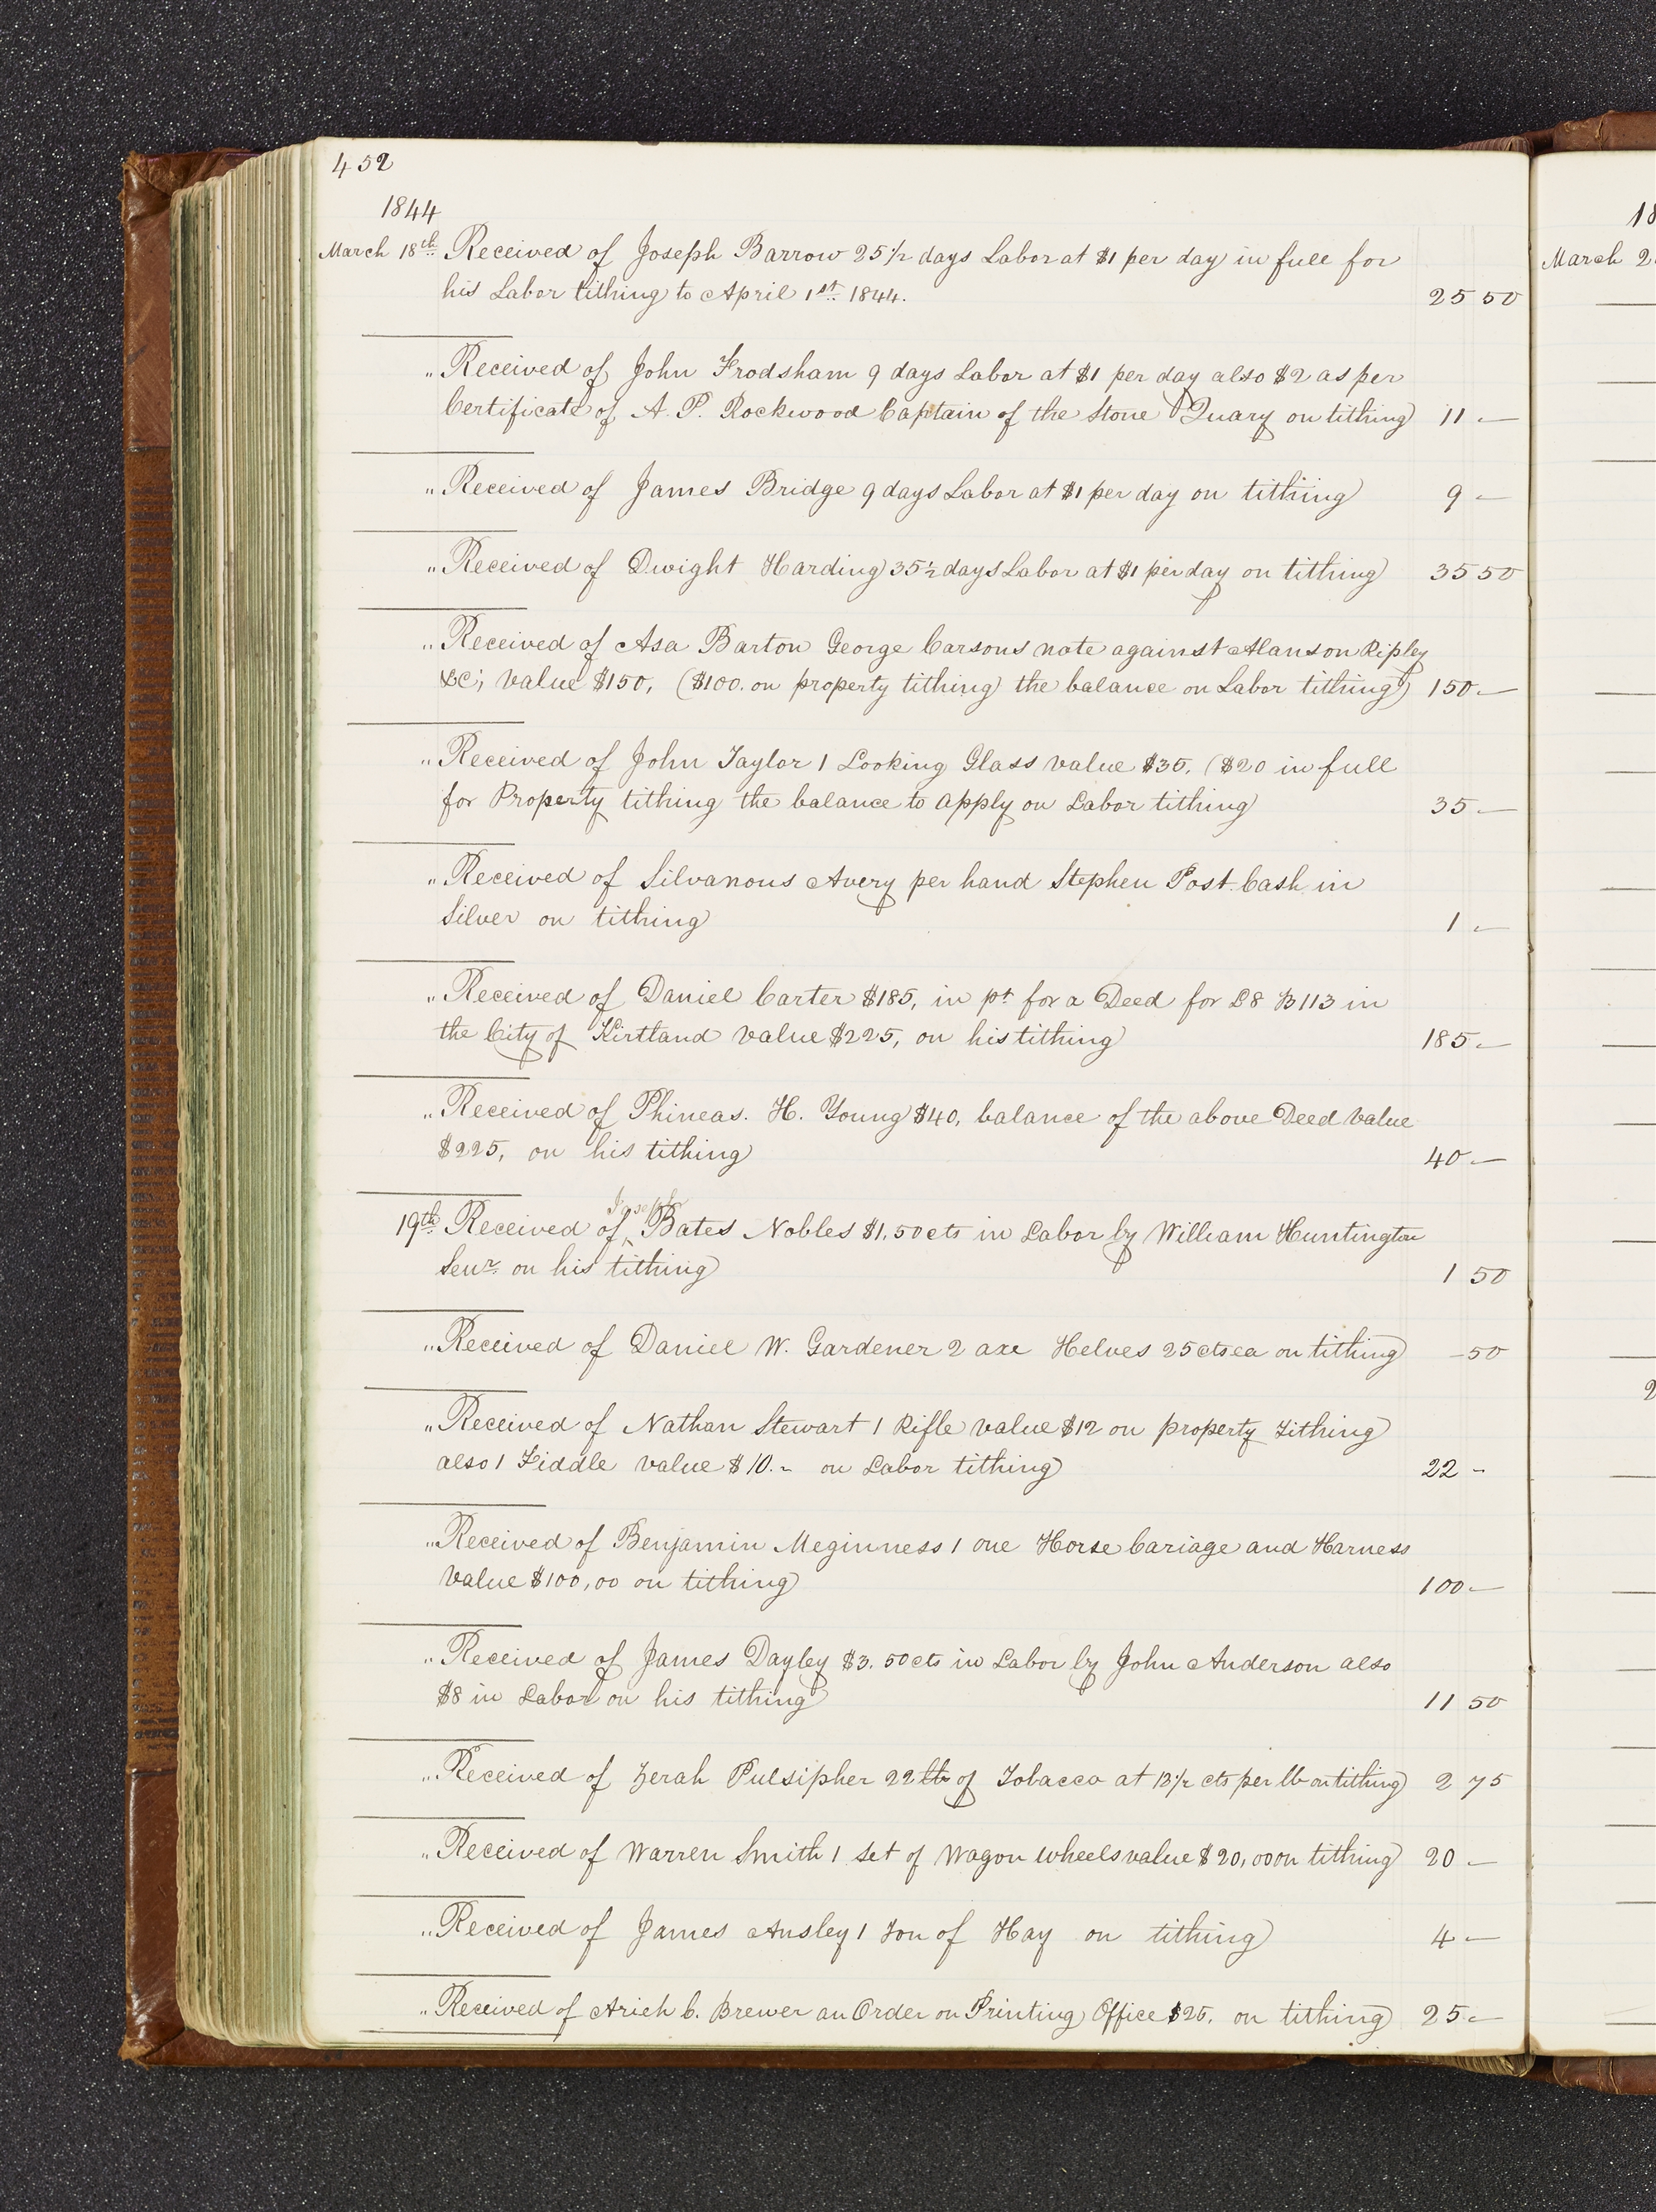 452
1844
March 18th Received of Joseph Barrow 25 1/2 days Labor at $1 per day in full for
his Labor tithing to April 1st 1844. 25 50
" Received of John Frodsham 9 days Labor at $1 per day also $2 as per
Certificate of A. P. Rockwood Captain of the Stone Quary on tithing 11 —
" Received of James Bridge 9 days Labor at $1 per day on tithing 9 —
" Received of Dwight Harding 35 1/2 days Labor at $1 per day on tithing 35 50
" Received of Asa Barton George Carsons note against Alanson Ripley
&C; value $150, ($100. on property tithing the balance on Labor tithing) 150 —
" Received of John Taylor 1 Looking Glass value $35. ($20 in full
for Property tithing the balance to apply on Labor tithing 35 —
" Received of Silvanous Avery per hand Stephen Post Cash in
Silver on tithing 1 —
" Received of Daniel Carter $185, in pt for a Deed for L8 B113 in
the City of Kirtland value $225, on his tithing 185 —
" Received of Phineas. H. Young $40, balance of the above Deed value
$225, on his tithing 40 —
Joseph
19th Received of ^ Bates Nobles $1.50 cts in Labor by William Huntington
Senr. on his tithing 1 50
" Received of Daniel W. Gardener 2 axe Helves 25 cts ea on tithing – 50
" Received of Nathan Stewart 1 Rifle value $12 on property Tithing
also 1 Fiddle value $10.– on Labor tithing 22 –
" Received of Benjamin Meginness 1 one Horse Cariage and Harness
value $100,00 on tithing 100 —
" Received of James Dayley $3.50 cts in Labor by John Anderson also
$8 in Labor on his tithing 11 50
" Received of Zerah Pulsipher 22 lb of Tobacco at 12 1/2 cts per lb on tithing 2 75
" Received of Warren Smith 1 set of Wagon wheels value $20,00 on tithing 20 —
" Received of James Ansley 1 Ton of Hay on tithing 4 —
" Received of Arieh C. Brewer an Order on Printing Office $25. on tithing 25 —
18
March 2
2